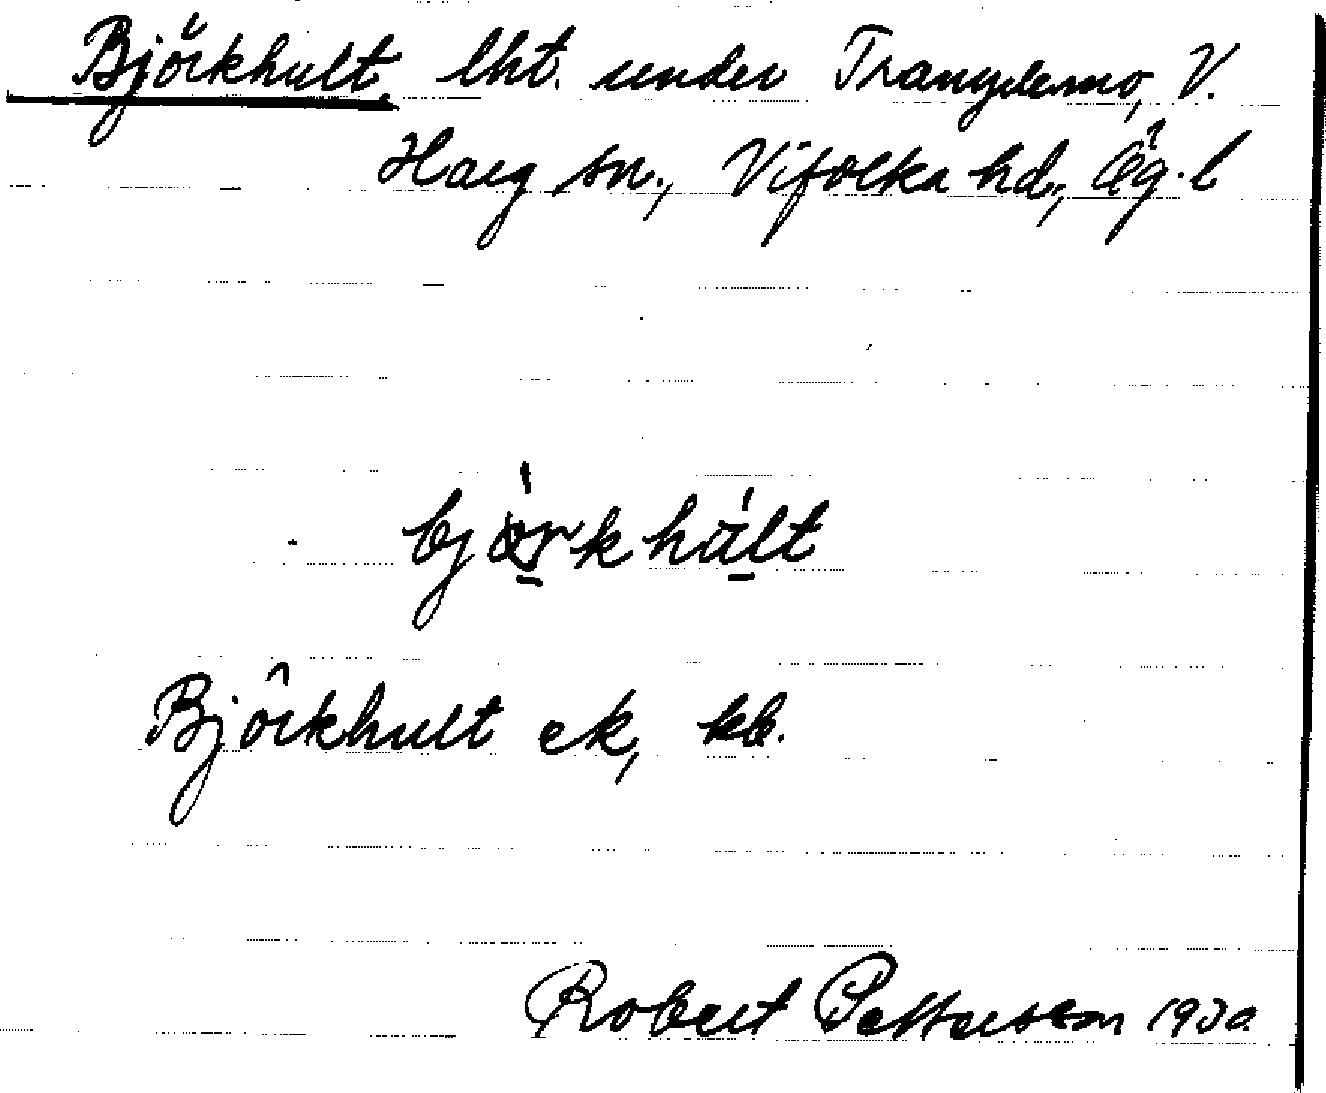 Björkhult, lht. under Trangdemo, V.
Harg sn., Vifolka hd, Ög. l
björkhult
Björkhult ek, kb.
Robert Pettersson 1930